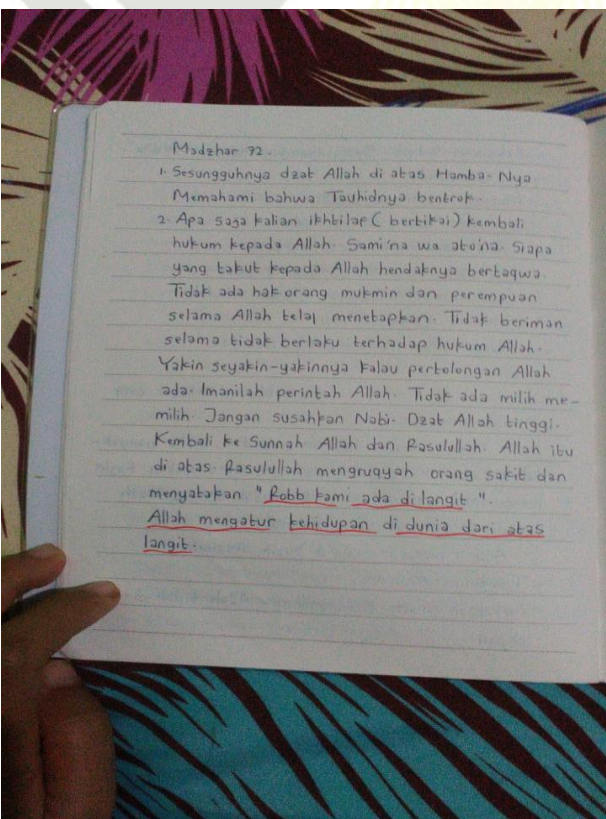 Madzhar 72.
1. Sesungguhnya dzat Allah di atas Hamba-Nya
Memahami bahwa Tauhidnya bentrok.
2. Apa saja kalian ikhtilaf (bertikai) kembali
hukum kepada Allah. Sami'na wa ato'na. Siapa
yang takut kepada Allah hendaknya bertaqwa.
Tidak ada hak orang mukmin dan perempuan
selama Allah telaj menetapkan. Tidak beriman
selama tidak berlaku terhadap hukum Allah.
Yakin seyakin-yakinnya kalau pertolongan Allah
ada. Imanilah perintah Allah. Tidak ada milih me-
milih. Jangan susahkan Nabi. Dzat Allah tinggi.
Kembali ke Sunnah Allah dan Rasulullah. Allah itu
di atas. Rasulullah mengruqyah orang sakit dan
menyatakan "Robb kami ada di langit".
Allah mengatur kehidupan di dunia dari atas
langit.